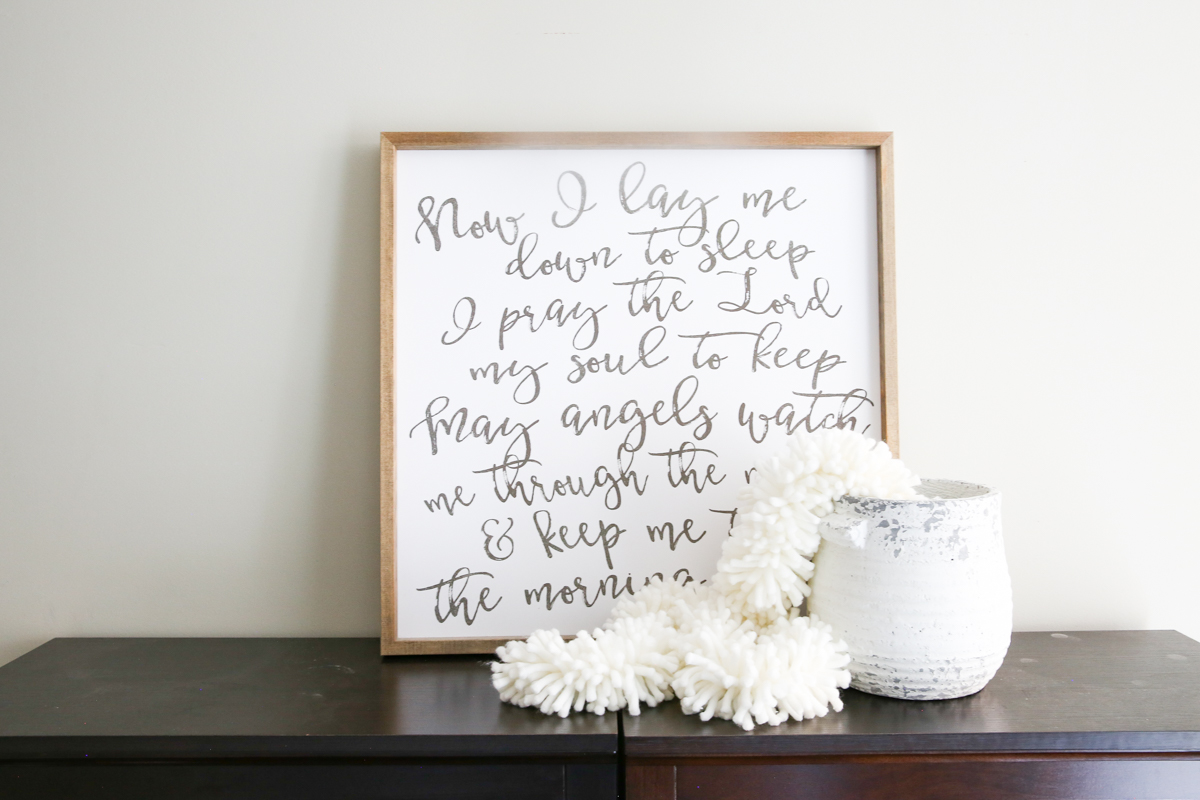 Now I lay me
down to sleep
I pray the Lord
my soul to keep
May angels watch
me through the
& keep me
the morning